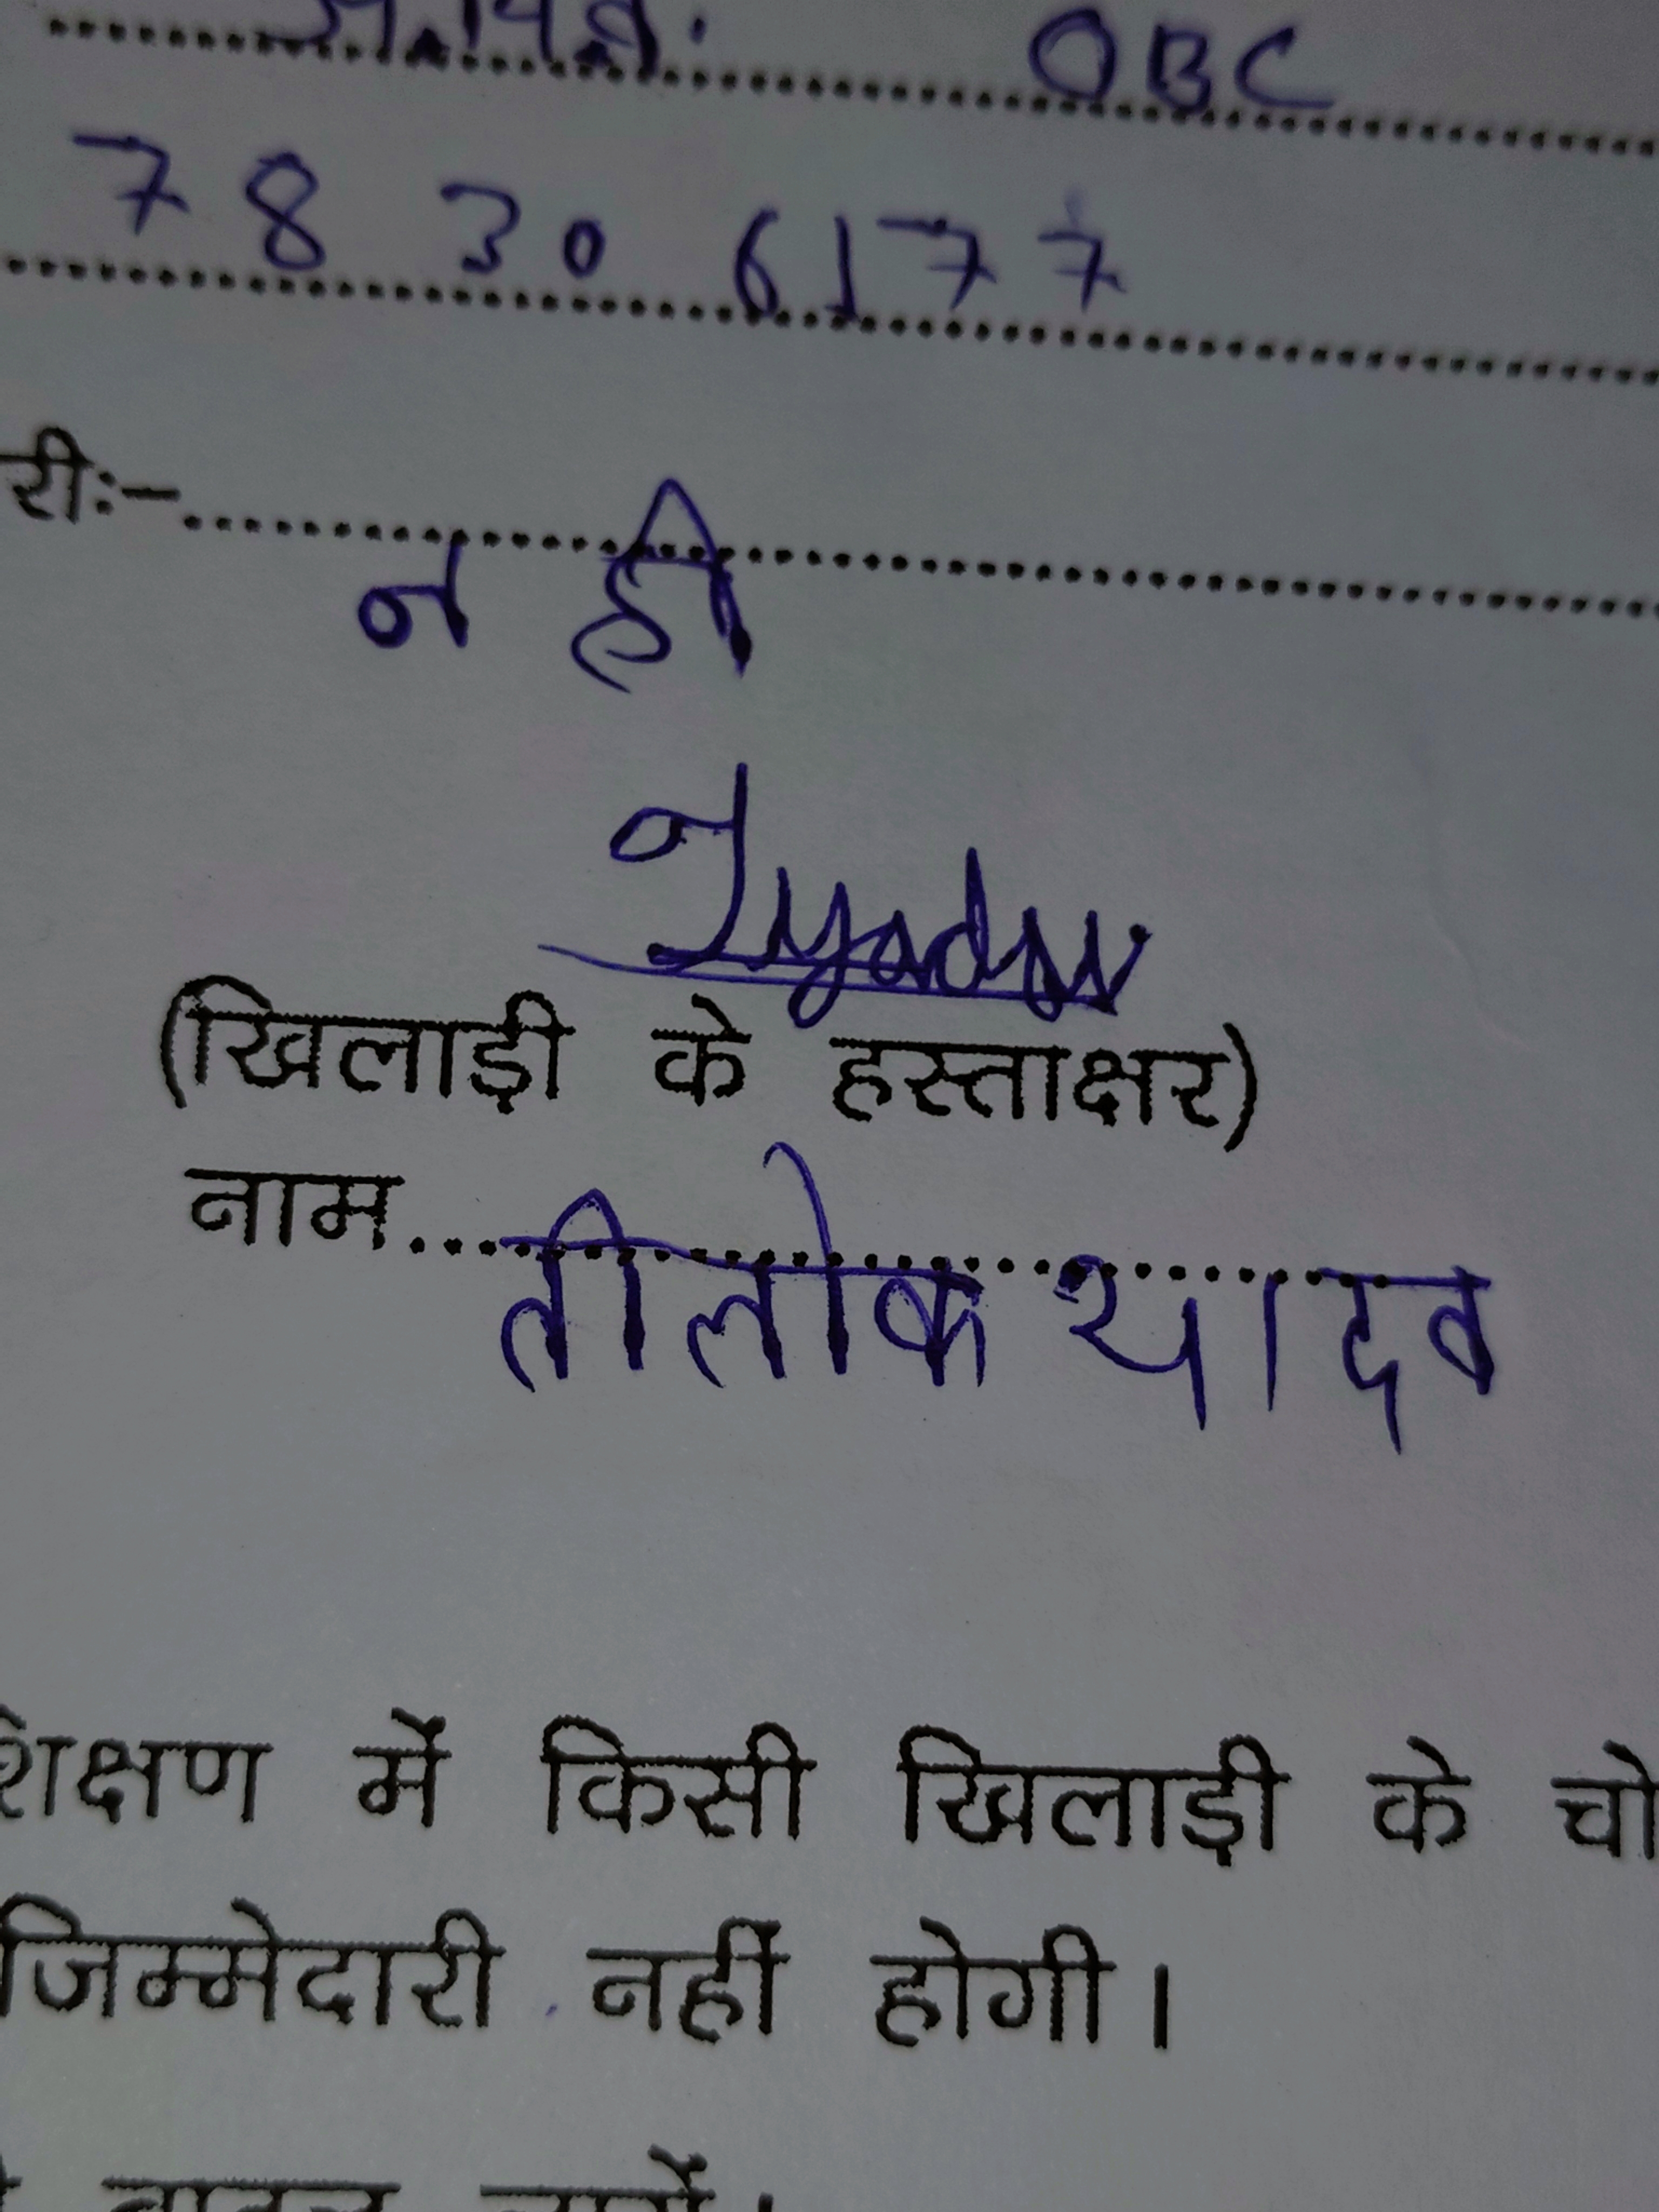 OBC
78 30 6177
रीः-
न ही
Tyadav
(खिलाड़ी के हस्ताक्षर)
नाम तीलोक यादव
शिक्षण में किसी खिलाड़ी के चो
जिम्मेदारी नहीं होगी।